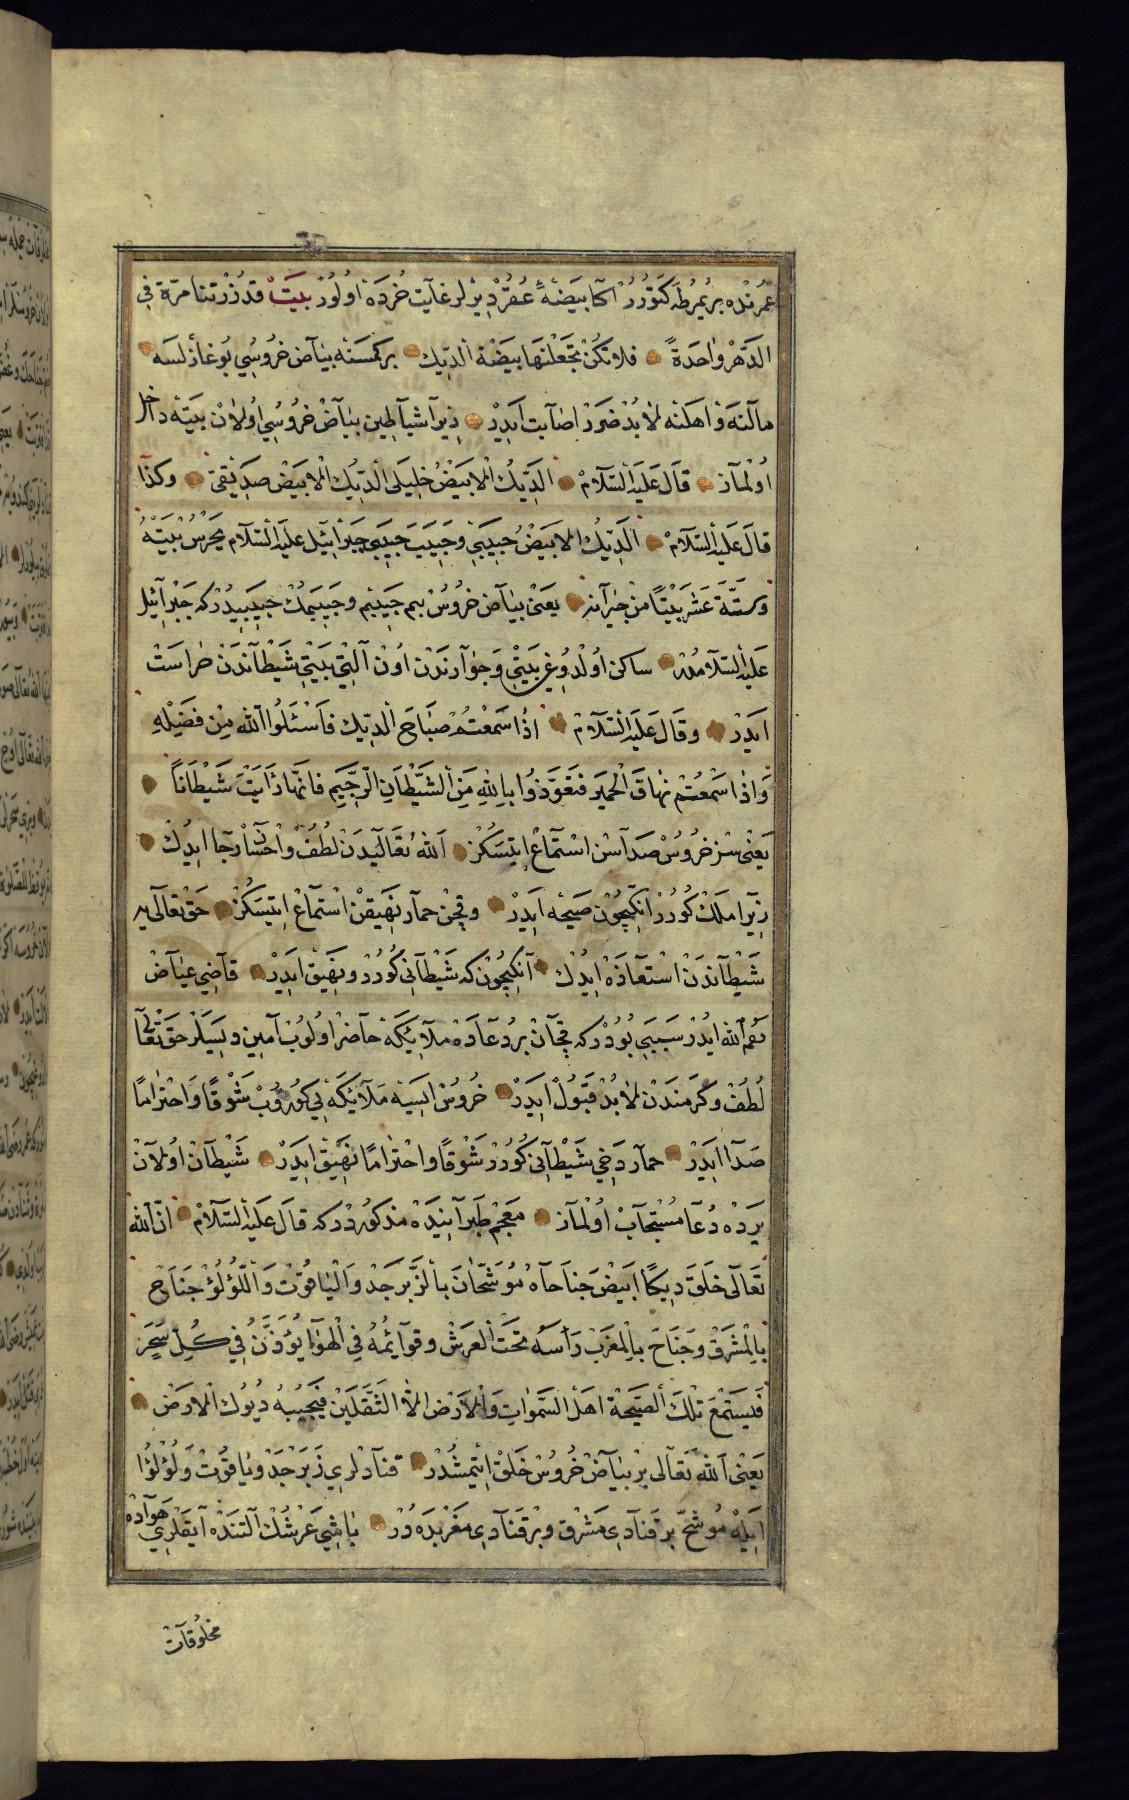 عمرنده بر يمرطه كتورر اكا بيضهٔ عقر ديرلر غايت خرده اولور بيت قد زرتنا مرّة في
الدّهر واحدةً فلا تكن تجعلنها بيضة الديك بر كمسنه بياض خروسي بوغازلسه
مالنه و اهلنه لابد ضرر اصابت ايدر زيرا شياطين بياض خروسي اولان بيته داخل
اولماز قال عليه السّلام الديك الابيض خليلى الديك الابيض صديقى وكذا
قال عليه السّلام الديك الابيض حبيبي وحبيب حبيبي جبرائيل عليه السّلام يحرس بيته
وستّة عشر بيتًا من جيرانه يعنى بياض خروس بنم حبيبم وحبيبمك حبيبيدر كه جبرائيل
عليه السلامدر ساكن اولدوغي بيتي وجواردن اون التي بيتي شيطاندن حراست
ايدر وقال عليه السّلام اذا سمعتم صباح الديك فاسئلوا الله من فضله
واذا سمعتم نهاق الحمير فتعوّذوا بالله من الشّيطان الرّجيم فانّها رأيت شيطانًا
يعنى سز خروس صداسن استماع ايتسكز الله تعاليدن لطف واحسان رجا ايدك
زيرا ملك كورر انكيچون صيحه ايدر وقچن حمار نهيقن استماع ايتسكز حق تعالى يه
شيطاندن استعاذه ايدك انكيچون كه شيطانى كورر ونهيق ايدر قاضي عياض
رحمه الله ايدر سببي بودر كه قچان بر دعاده ملائكه حاضر اولوب امين ديسيلر حق تعالى
لطف وكرمندن لابد قبول ايدر خروس ايسه ملائكه يي كوروب شوقًا واحترامًا
صدا ايدر حمار دخي شيطانى كورر شوقًا واحترامًا نهيق ايدر شيطان اولان
يرده دعا مستجاب اولماز معجم طبرانيده مذكوردر كه قال عليه السّلام انّ الله
تعالى خلق ديكًا ابيض جناحاه موشّحان بالزّبرجد والياقوت واللّؤلؤ جناح
بالمشرق وجناح بالمغرب رأسه تحت العرش وقوائمه في الهواء يؤذّن في كلّ سحر
فيستمع تلك الصيحة اهل السّموات والارض الّا الثّقلين فيجيبه ديوك الارض
يعنى الله تعالى بر بياض خروس خلق ايتمشدر قنادلري زبرجد وياقوت ولؤلؤ
ايله موشح بر قنادى مشرق وبر قنادى مغربده در باشي عرشك التنده ايقلري هواده
مخلوقات